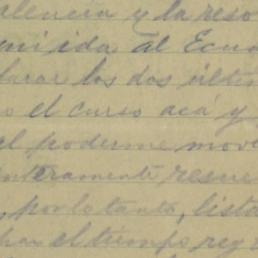 alencia y la reso
mi ida al Ecua
los dos últim
o el curso acá y
el poderme mov
enteramente resue
, por lo tanto, lista
har el tiempo reg